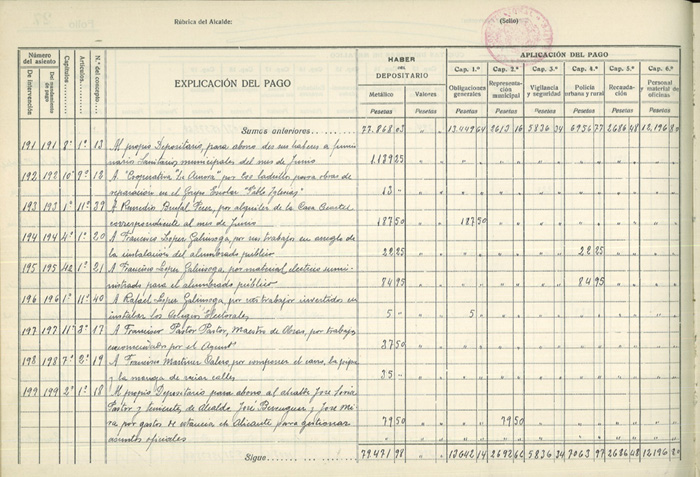 Rúbrica del Alcalde:
(Sello)
Número del asiento
De intervención
Del mandamiento de pago
Capítulos
Artículos
N.º del concepto
EXPLICACIÓN DEL PAGO
HABER DEL DEPOSITARIO
Metálico
Valores
Pesetas
Pesetas
APLICACIÓN DEL PAGO
Cap. 1.º
Obligaciones generales
Pesetas
Cap. 2.º
Representación municipal
Pesetas
Cap. 3.º
Vigilancia y seguridad
Pesetas
Cap. 4.º
Policía urbana y rural
Pesetas
Cap. 5.º
Recaudación
Pesetas
Cap. 6.º
Personal y material de oficinas
Pesetas
Sumas anteriores 77.868 03 " " 13.449 64 2613 16 5836 34 6956 77 2686 48 12196 80
191 191 8º 1º 13 Al propio Depositario, para abono de sus haberes a funcionarios Sanitarios municipales del mes de Junio
1.189 25
192 192 10º 9º 12 A "Cooperativa "La Aurora" por 200 ladrillos para obras de reparación en el Grupo Escolar "Pablo Iglesias"
13 "
193 193 1º 11º 39 A Remedio Brufal Pérez, por alquiler de la Casa Cuartel correspondiente al mes de Junio
187 50 " " 187 50
194 194 4º 1º 20 A Francisco López Galiusoga, por sus trabajos en arreglo de la instalación del alumbrado público
22 25 22 25
195 195 4º 1º 21 A Francisco López Galiusoga, por material eléctrico suministrado para el alumbrado público
84 95 84 95
196 196 1º 11º 40 A Rafael López Galiusoga por sus trabajos invertidos en instalar los Colegios Electorales
5 " 5
197 197 11º 3º 17 A Francisco Pastor Pastor, Maestro de Obras, por trabajos encomendados por el Ayunto
37 50
198 198 7º 2º 19 A Francisco Martínez Valero por componer el carro, la pipa y la manga de regar calles
35 "
199 199 2º 1º 18 Al propio Depositario para abono al alcalde José Pastor y tenientes de alcalde José Berenguer y José Mira por gastos de estancia en Alicante para gestionar asuntos oficiales
79 50 79 50
Sigue 79.471 98 " " 13642 14 2692 66 5836 34 7063 97 2686 48 12196 80